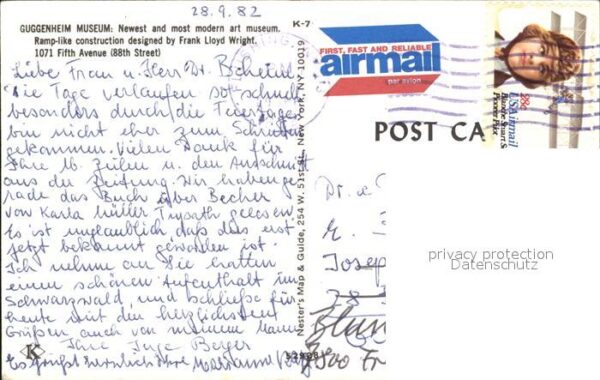 28.9.82
GUGGENHEIM MUSEUM: Newest and most modern art museum.
Ramp-like construction designed by Frank Lloyd Wright.
1071 Fifth Avenue (88th Street)
K-7
Liebe Frau u. Herr Dr.
die Tage verlaufen so schnell
besonders durch die Feiertage
bin nicht eher zum Schreiben
gekommen. Vielen Dank für
Ihre lb. Zeilen u. den Ausschnitt
aus der Zeitung. Wir haben ge-
rade das Buch über Becher
von Karla Müller gelesen.
Es ist unglaublich daß das erst
jetzt bekannt geworden ist.
Ich nehme an Sie hatten
einen schönen Aufenthalt im
Schwarzwald, und schließe für
heute mit den herzlichsten
Grüßen auch von meinem Mann
Ihre Inge Berger
Es grüßt herzlichst Ihr
K
Nester's Map & Guide, 254 W. 51st St., New York, NY 10019
FIRST, FAST AND RELIABLE
airmail
par avion
28c
USAirmail
Blanche Stuart Scott
Pioneer Pilot
POST CA
Dr. u
Josep
78
7800 Fr
privacy protection
Datenschutz